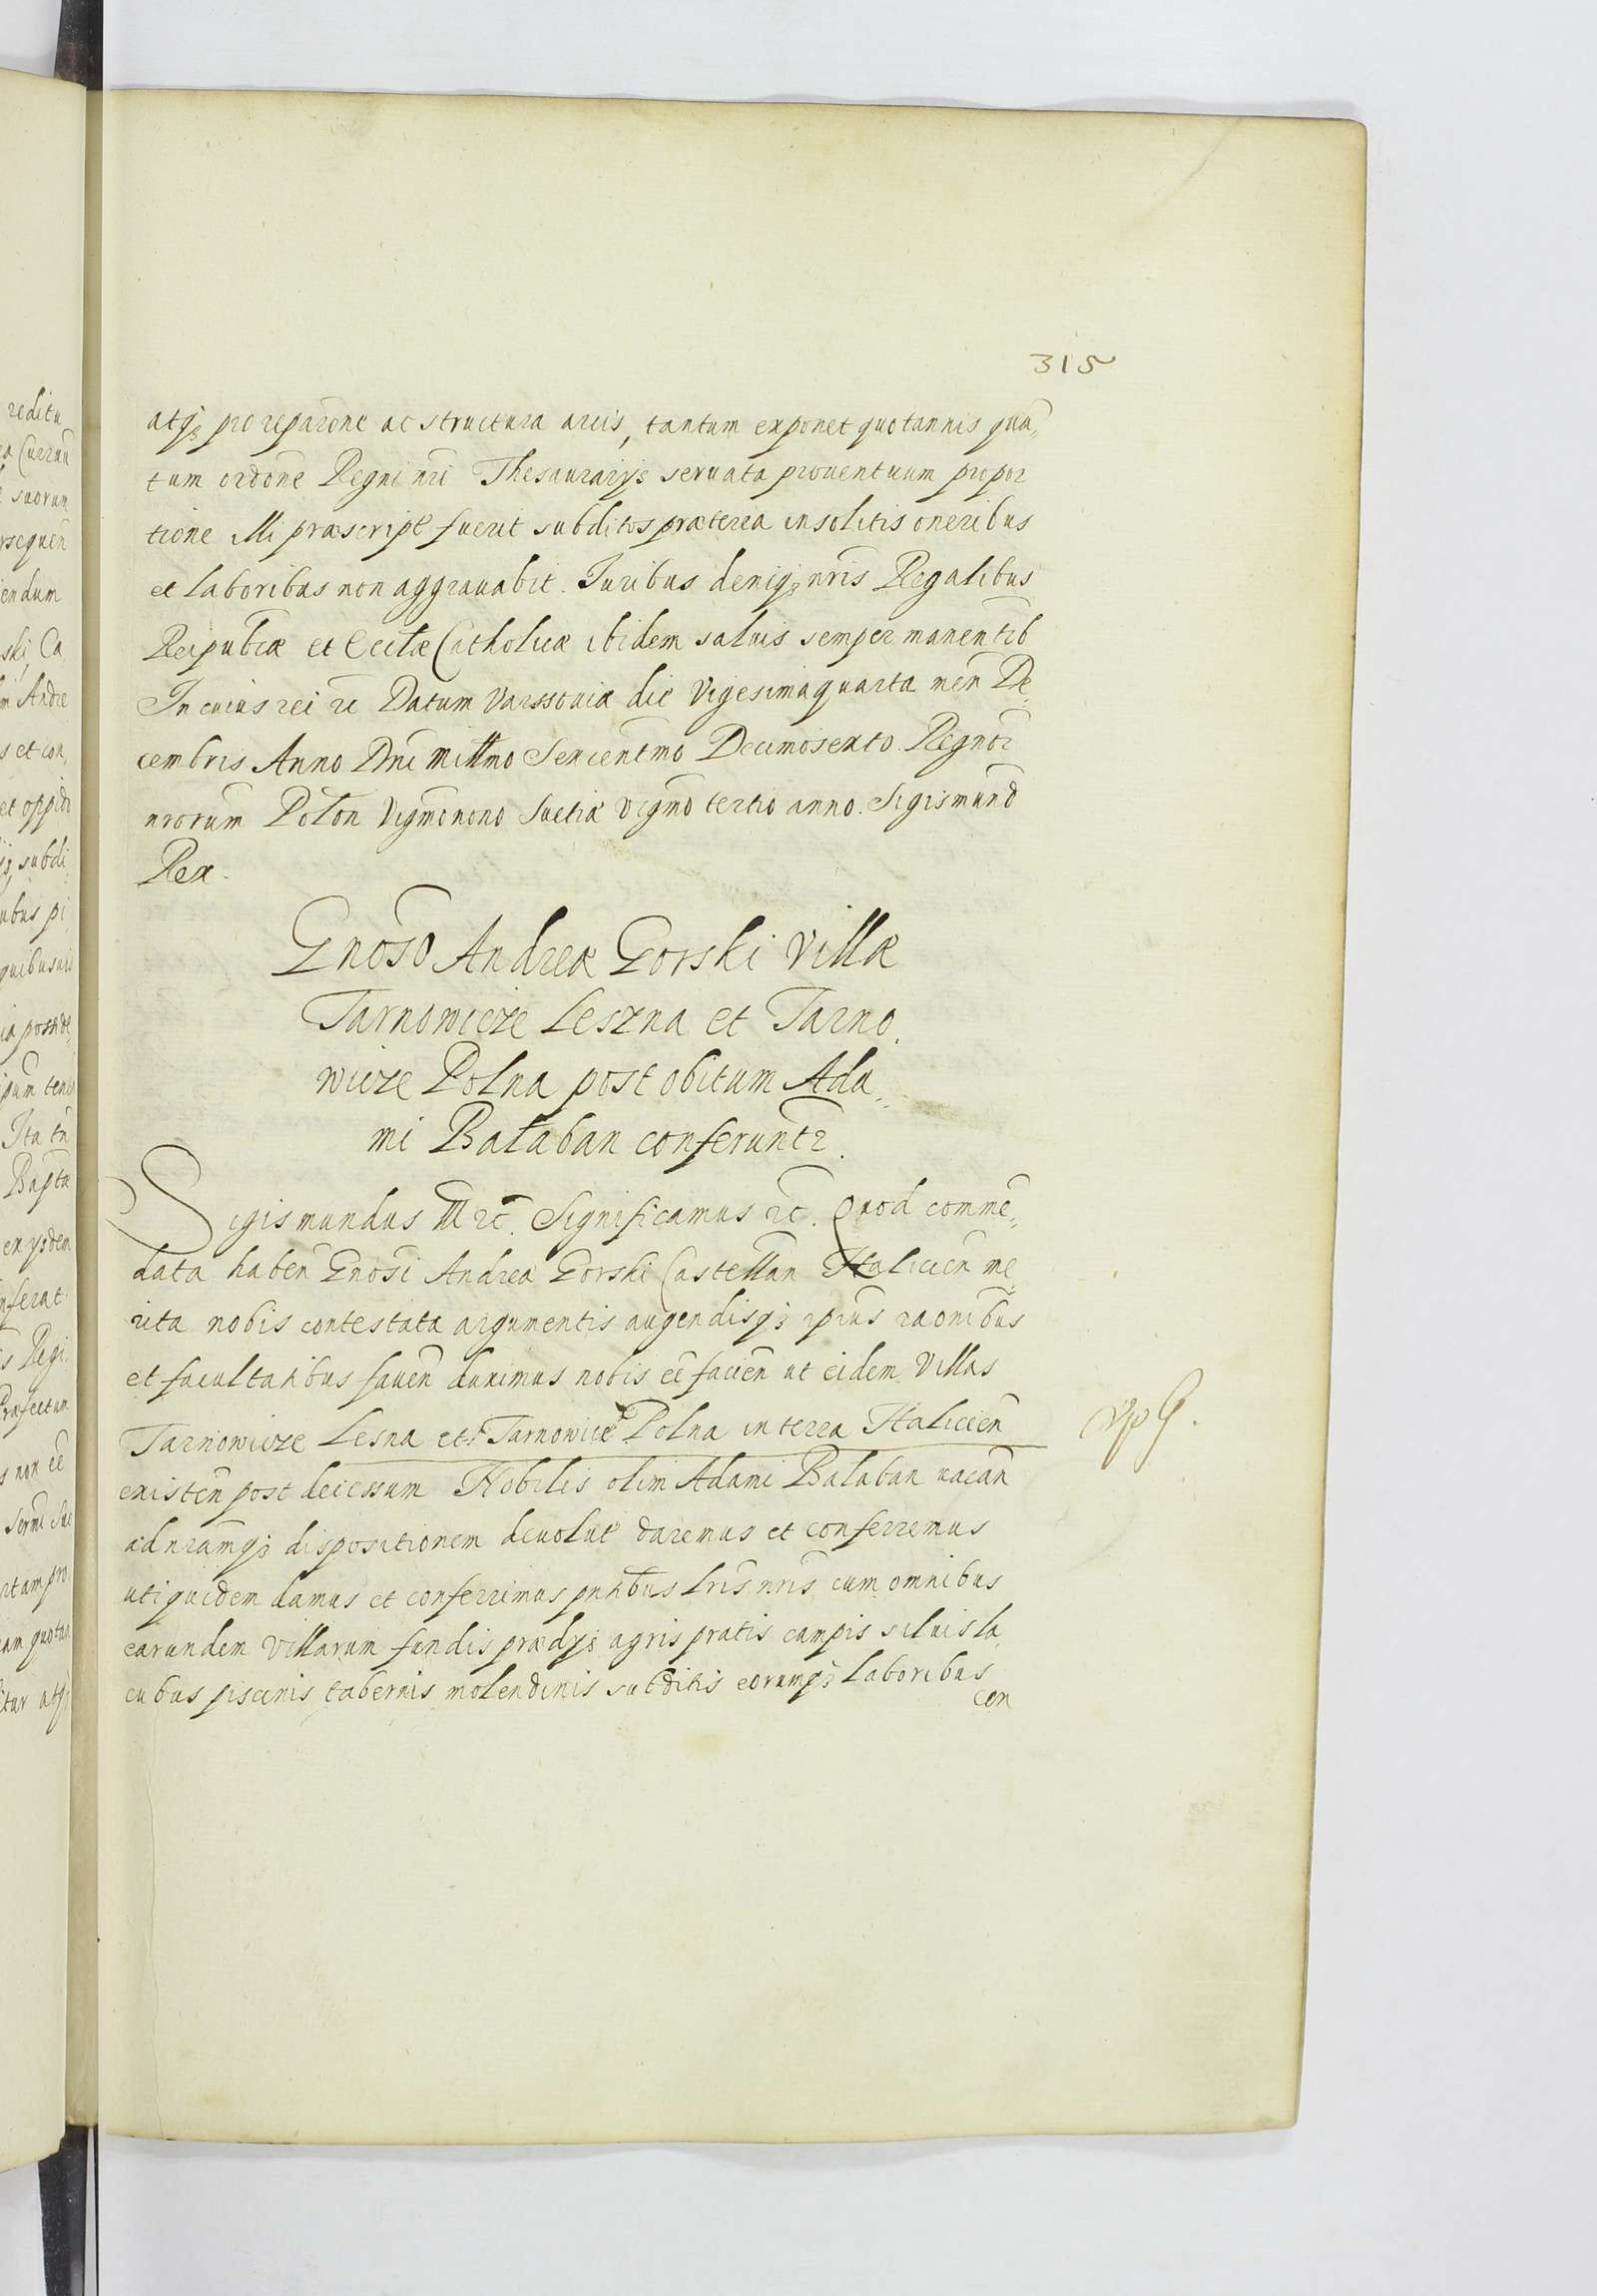 315
atq₃ pro reparōne ac structura arcis, tantum exponet quotannis quā„
tum ordōne Regni nri Thesaurarijs seruata prouentuum propor
tione illi præscript fuerit subditos præterea insolitis oneribus
et laboribus non aggrauabit. Iuribus deniq₃ nris Regalibus
Reipublicæ et Ecclæ Catholicæ ibidem saluis semper manentib
In cuius rei rc̄ Datum Varssouiæ die Vigesima quarta men̄ De„
cembris Anno Dni Millmo Sexcentmo Decimosexto Regnor
nrorum Polon Vigmonono Suetiæ Vigmo tertio anno. Sigismund
Rex.
Gnoso Andreæ Gorski Villæ
Tarnowicze Leszna et Tarno„
wicze Polna post obitum Ada„
mi Bałaban conferuntr.
Sigismundus III rc̄. Significamus rc̄. Quod comme„
data haben̄ Gnosi Andreæ Gorski Castellan Halicien̄ me„
rita nobis contestata argumentis augendisq₃ ipsius raonibus
et facultatibus fauen̄ duximus nobis ee facien̄ ut eidem Villas
Tarnowicze Lesna et Tarnowice Polna in terra Halicien̄
existen̄ post decessum Nobilis olim Adami Balaban uacan̄
ad nramq₃ dispositionem deuolut daremus et conferremus
uti quidem damus et conferrimus pntibus lris nris cum omnibus
earundem Villarum fundis prædijs agris pratis campis siluis la„
cubus piscinis tabernis molendinis subditis eorumq₃ laboribus
cen